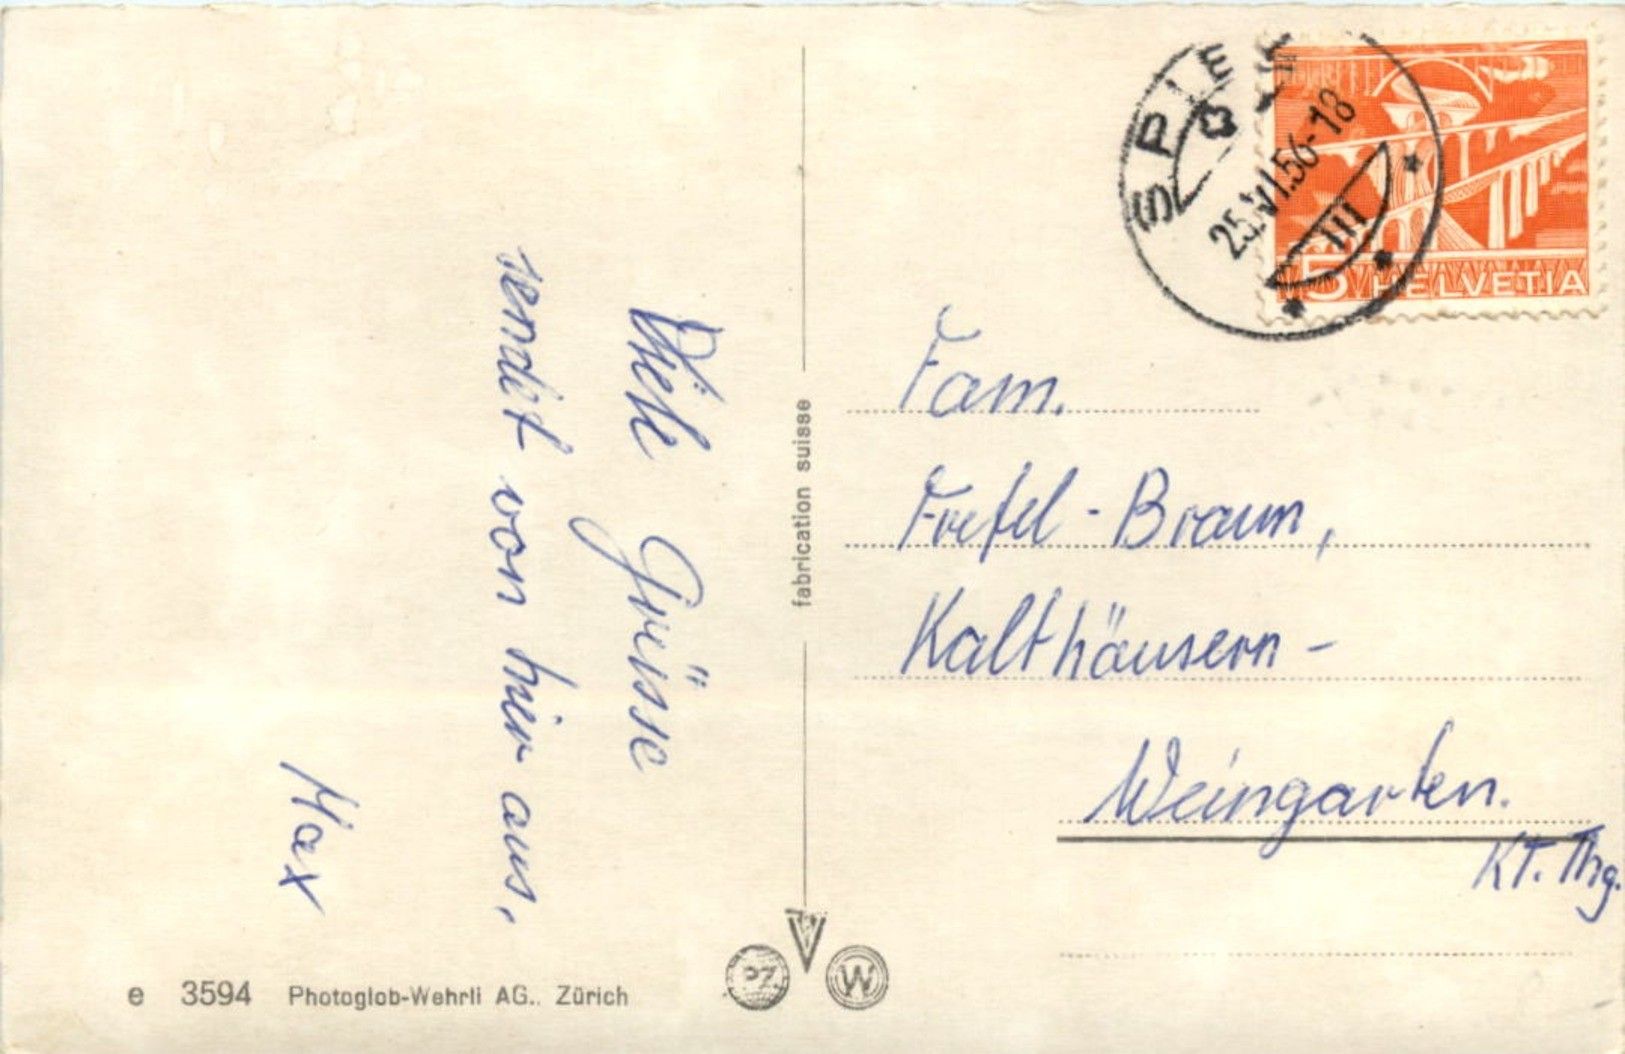 Viele Grüsse
sendet von hier aus,
Max
e 3594 Photoglob-Wehrli AG., Zürich
fabrication suisse
PZ
W
SPIEZ
25.VI.56-18
III
5 HELVETIA
Fam.
Fretel-Braun,
Kalthäusern-
Weingarten.
Kt. Thg.